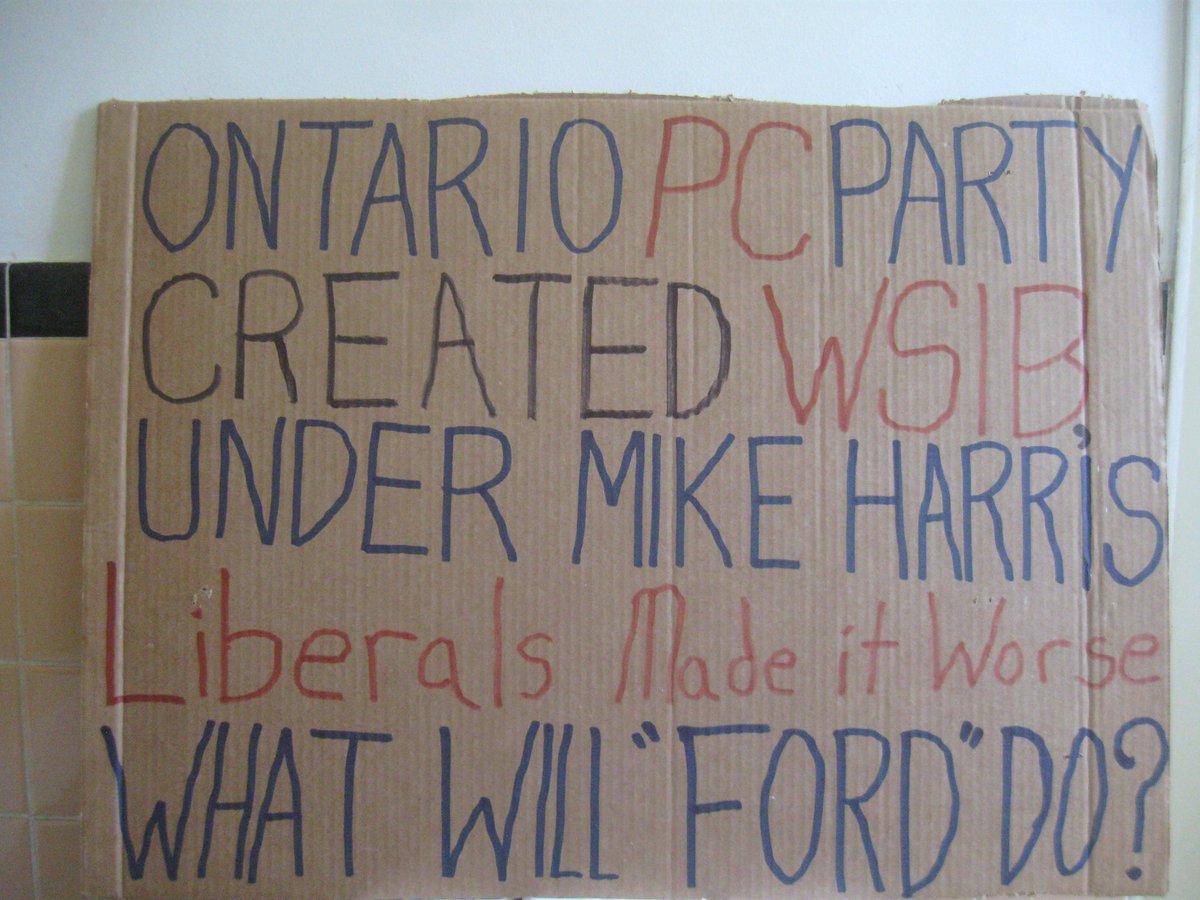 ONTARIO PC PARTY
CREATED WSIB
UNDER MIKE HARRiS
Liberals Made it Worse
WHAT WILL "FORD" DO?